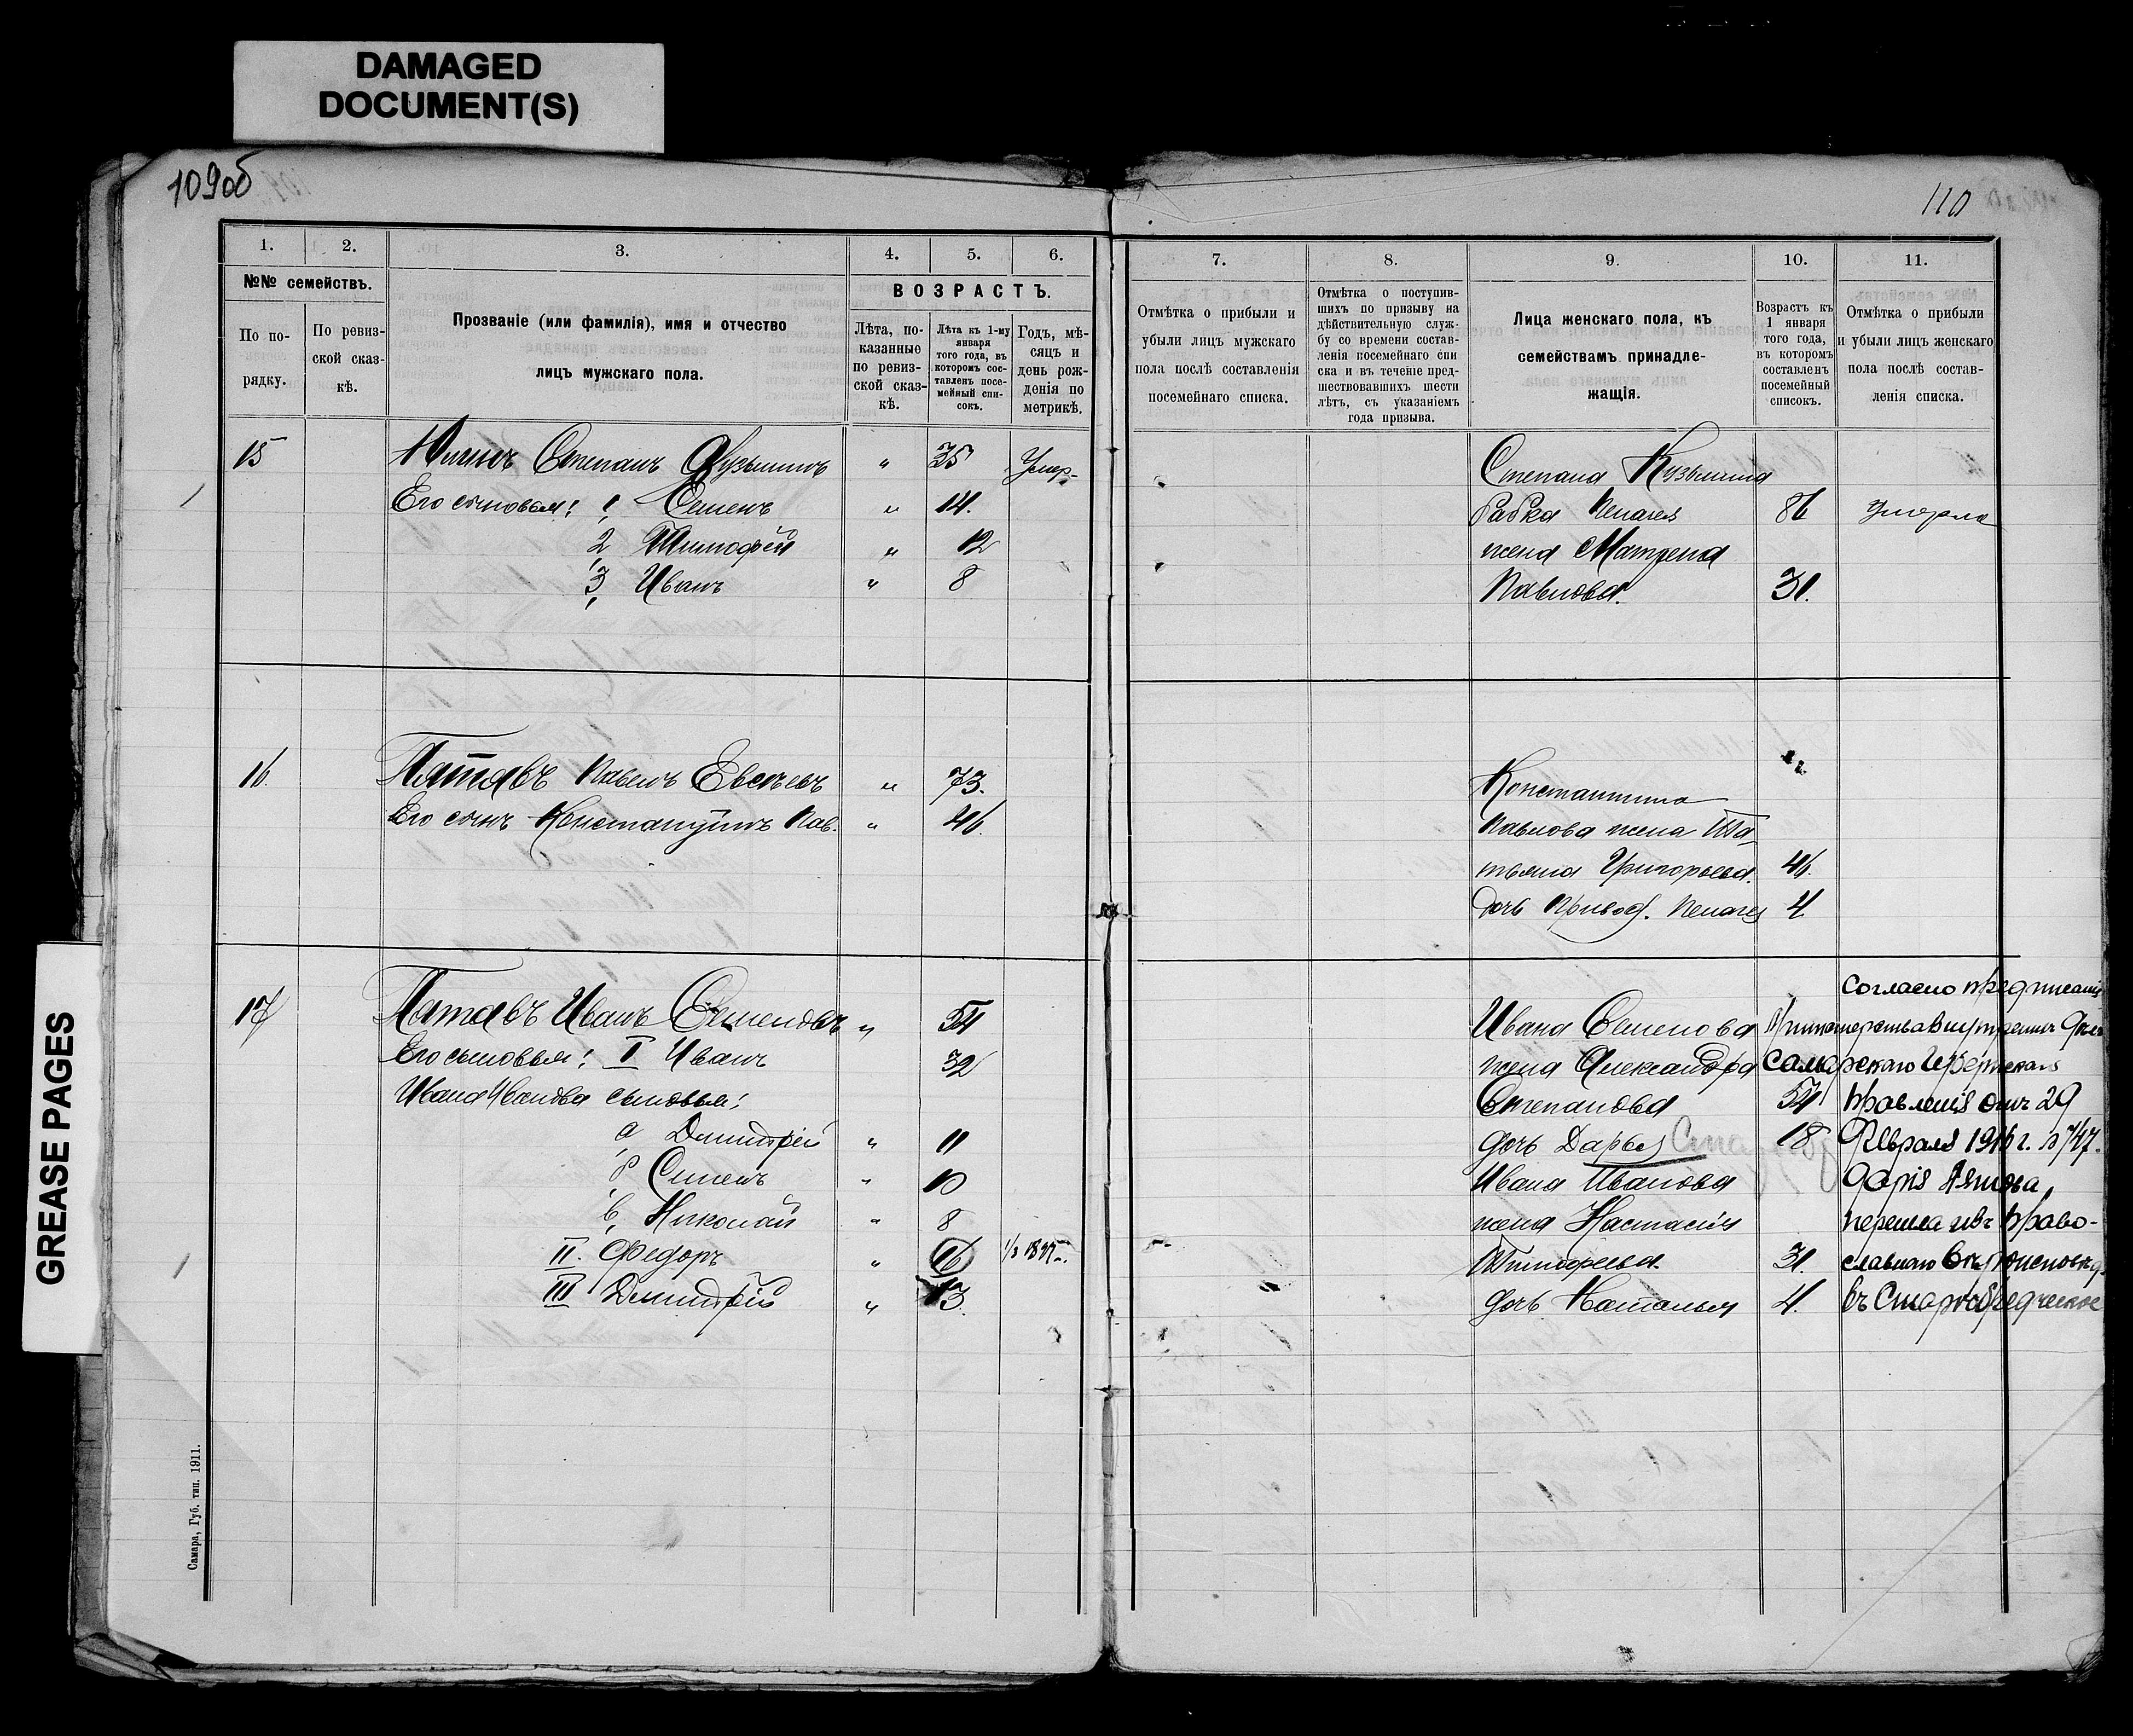 DAMAGED
DOCUMENT(S)
GREASE PAGES
109об
1.
2.
3.
4.
5.
6.
№№ семействъ.
ВОЗРАСТЪ.
По по-
рядку.
По ревиз-
ской сказ-
кѣ.
Прозваніе (или фамилія), имя и отчество
лицъ мужского пола.
Лѣта, по-
казанные
по ревиз-
ской сказ-
кѣ.
Лѣта къ 1-му
января
того года, въ
которомъ сос-
тавленъ посе-
мейный спи-
сокъ.
Годъ, мѣ-
сяцъ и
день рож-
денія по
метрикѣ.
15 Степанъ Кузьминъ „ 35 Умер.
Его сыновья: 1, Семенъ „ 14.
2, Тимофей „ 12
3, Иванъ „ 8
16. Пятаевъ Павелъ Евсѣевъ „ 73.
Его сынъ Константинъ Пав. „ 46.
17 Пятаевъ Иванъ Семеновъ „ 54
Его сыновья: I Иванъ 32
Ивана Иванова сыновья:
а, Дмитрій „ 11
б, Семенъ „ 10
в, Николай „ 8
II. Федоръ „ 16
III Дмитрій „ 13.
Самара, Губ. тип. 1911.
110
7.
8.
9.
10.
11.
Отмѣтка о прибыли и
убыли лицъ мужского
пола послѣ составленія
посемейнаго списка.
Отмѣтка о поступив-
шихъ по призыву на
дѣйствительную служ-
бу со времени состав-
ленія посемейнаго спи
ска и въ теченіе пред-
шествовавшихъ шести
лѣтъ, съ указаніемъ
года призыва.
Лица женскаго пола, къ
семействамъ принадле-
жащія.
Возрастъ къ
1 января
того года,
въ которомъ
составленъ
посемейный
списокъ.
Отмѣтка о прибыли
и убыли лицъ женскаго
пола послѣ состав-
ленія списка.
Степана Кузьмина
бабка Пелагея 86 Умерла
жена Матрена
Павлова. 31.
Константина
Павлова жена Та-
тьяна Григорьева. 46.
дочь Привод. Пелагея 4
Ивана Семенова
жена Александра
Степанова 54
дочь Дарья 18
Ивана Иванова
жена Настасія
Тимофеева. 31.
дочь Наталья 4.
Согласно предписанія
Самарскаго Губернскаго
Правленія отъ 29
Февраля 1916 г. № 747.
Дарія Пятова,
перешла изъ Право-
славнаго
въ Старообрядческое